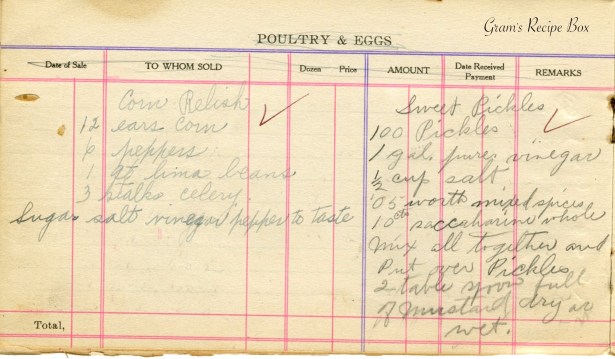 Gram's Recipe Box
POULTRY & EGGS
Date of Sale TO WHOM SOLD Dozen Price AMOUNT Date Received Payment REMARKS
Corn Relish
12 ears corn
6 peppers
1 qt lima beans
3 stalks celery
Sugar salt vinegar pepper to taste
Sweet Pickles
100 Pickles
1 gal. pure vinegar
1/2 cup salt
.05 worth mixed spices
10cts saccharine whole
Mix all together and
Put over Pickles
2 table spoon full
of Mustard dry or
wet.
Total,